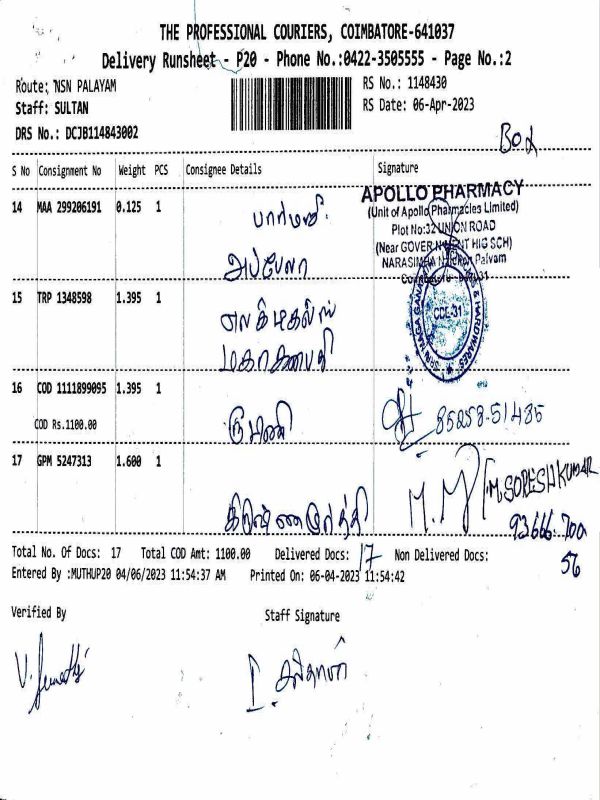 THE PROFESSIONAL COURIERS, COIMBATORE-641037
Delivery Runsheet - P20 - Phone No.:0422-3505555 - Page No.:2
Route: NSN PALAYAM
RS No.: 1148430
Staff: SULTAN
RS Date: 06-Apr-2023
DRS No.: DCJB114843002
Box
S No Consignment No Weight PCS Consignee Details Signature
14 MAA 299206191 0.125 1 பார்மஸி
அப்போலோ
APOLLO PHARMACY
(Unit of Apollo Pharmacies Limited)
Plot No:32 UNION ROAD
(Near GOVERNMENT HIG SCH)
NARASIMHA Palyam
15 TRP 1348598 1.395 1
மகாகணபதி
CBE-31
& HARDWARES
16 COD 1111899095 1.395 1
COD Rs.1100.00
85258-51485
17 GPM 5247313 1.600 1 கிருஷ்ணமூர்த்தி
M.SURESHKUMAR
93666 700
56
Total No. Of Docs: 17 Total COD Amt: 1100.00 Delivered Docs: 17 Non Delivered Docs:
Entered By :MUTHUP20 04/06/2023 11:54:37 AM Printed On: 06-04-2023 11:54:42
Verified By Staff Signature